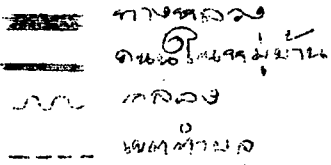 ทางหลวง
ถนนในหมู่บ้าน
คลอง
เขตตำบล